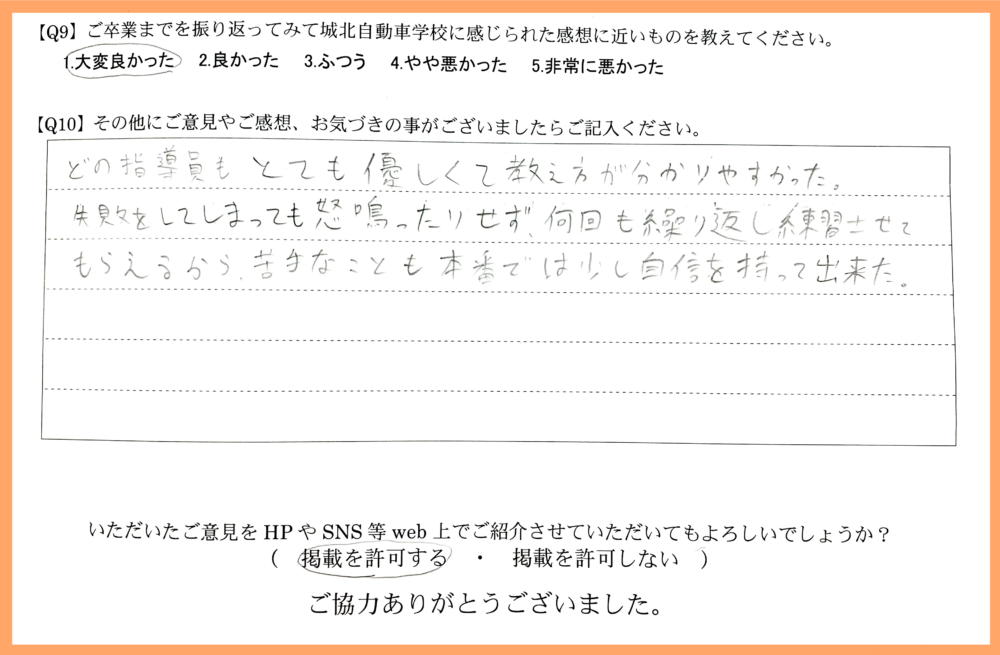 【Q9】ご卒業までを振り返ってみて城北自動車学校に感じられた感想に近いものを教えてください。
1.大変良かった 2.良かった 3.ふつう 4.やや悪かった 5.非常に悪かった
【Q10】その他にご意見やご感想、お気づきの事がございましたらご記入ください。
どの指導員もとても優しくて教え方が分かりやすかった。
失敗をしてしまっても怒鳴ったりせず、何回も繰り返し練習させて
もらえるから、苦手なことも本番では少し自信を持って出来た。
いただいたご意見をHPやSNS等web上でご紹介させていただいてもよろしいでしょうか？
（ 掲載を許可する ・ 掲載を許可しない ）
ご協力ありがとうございました。